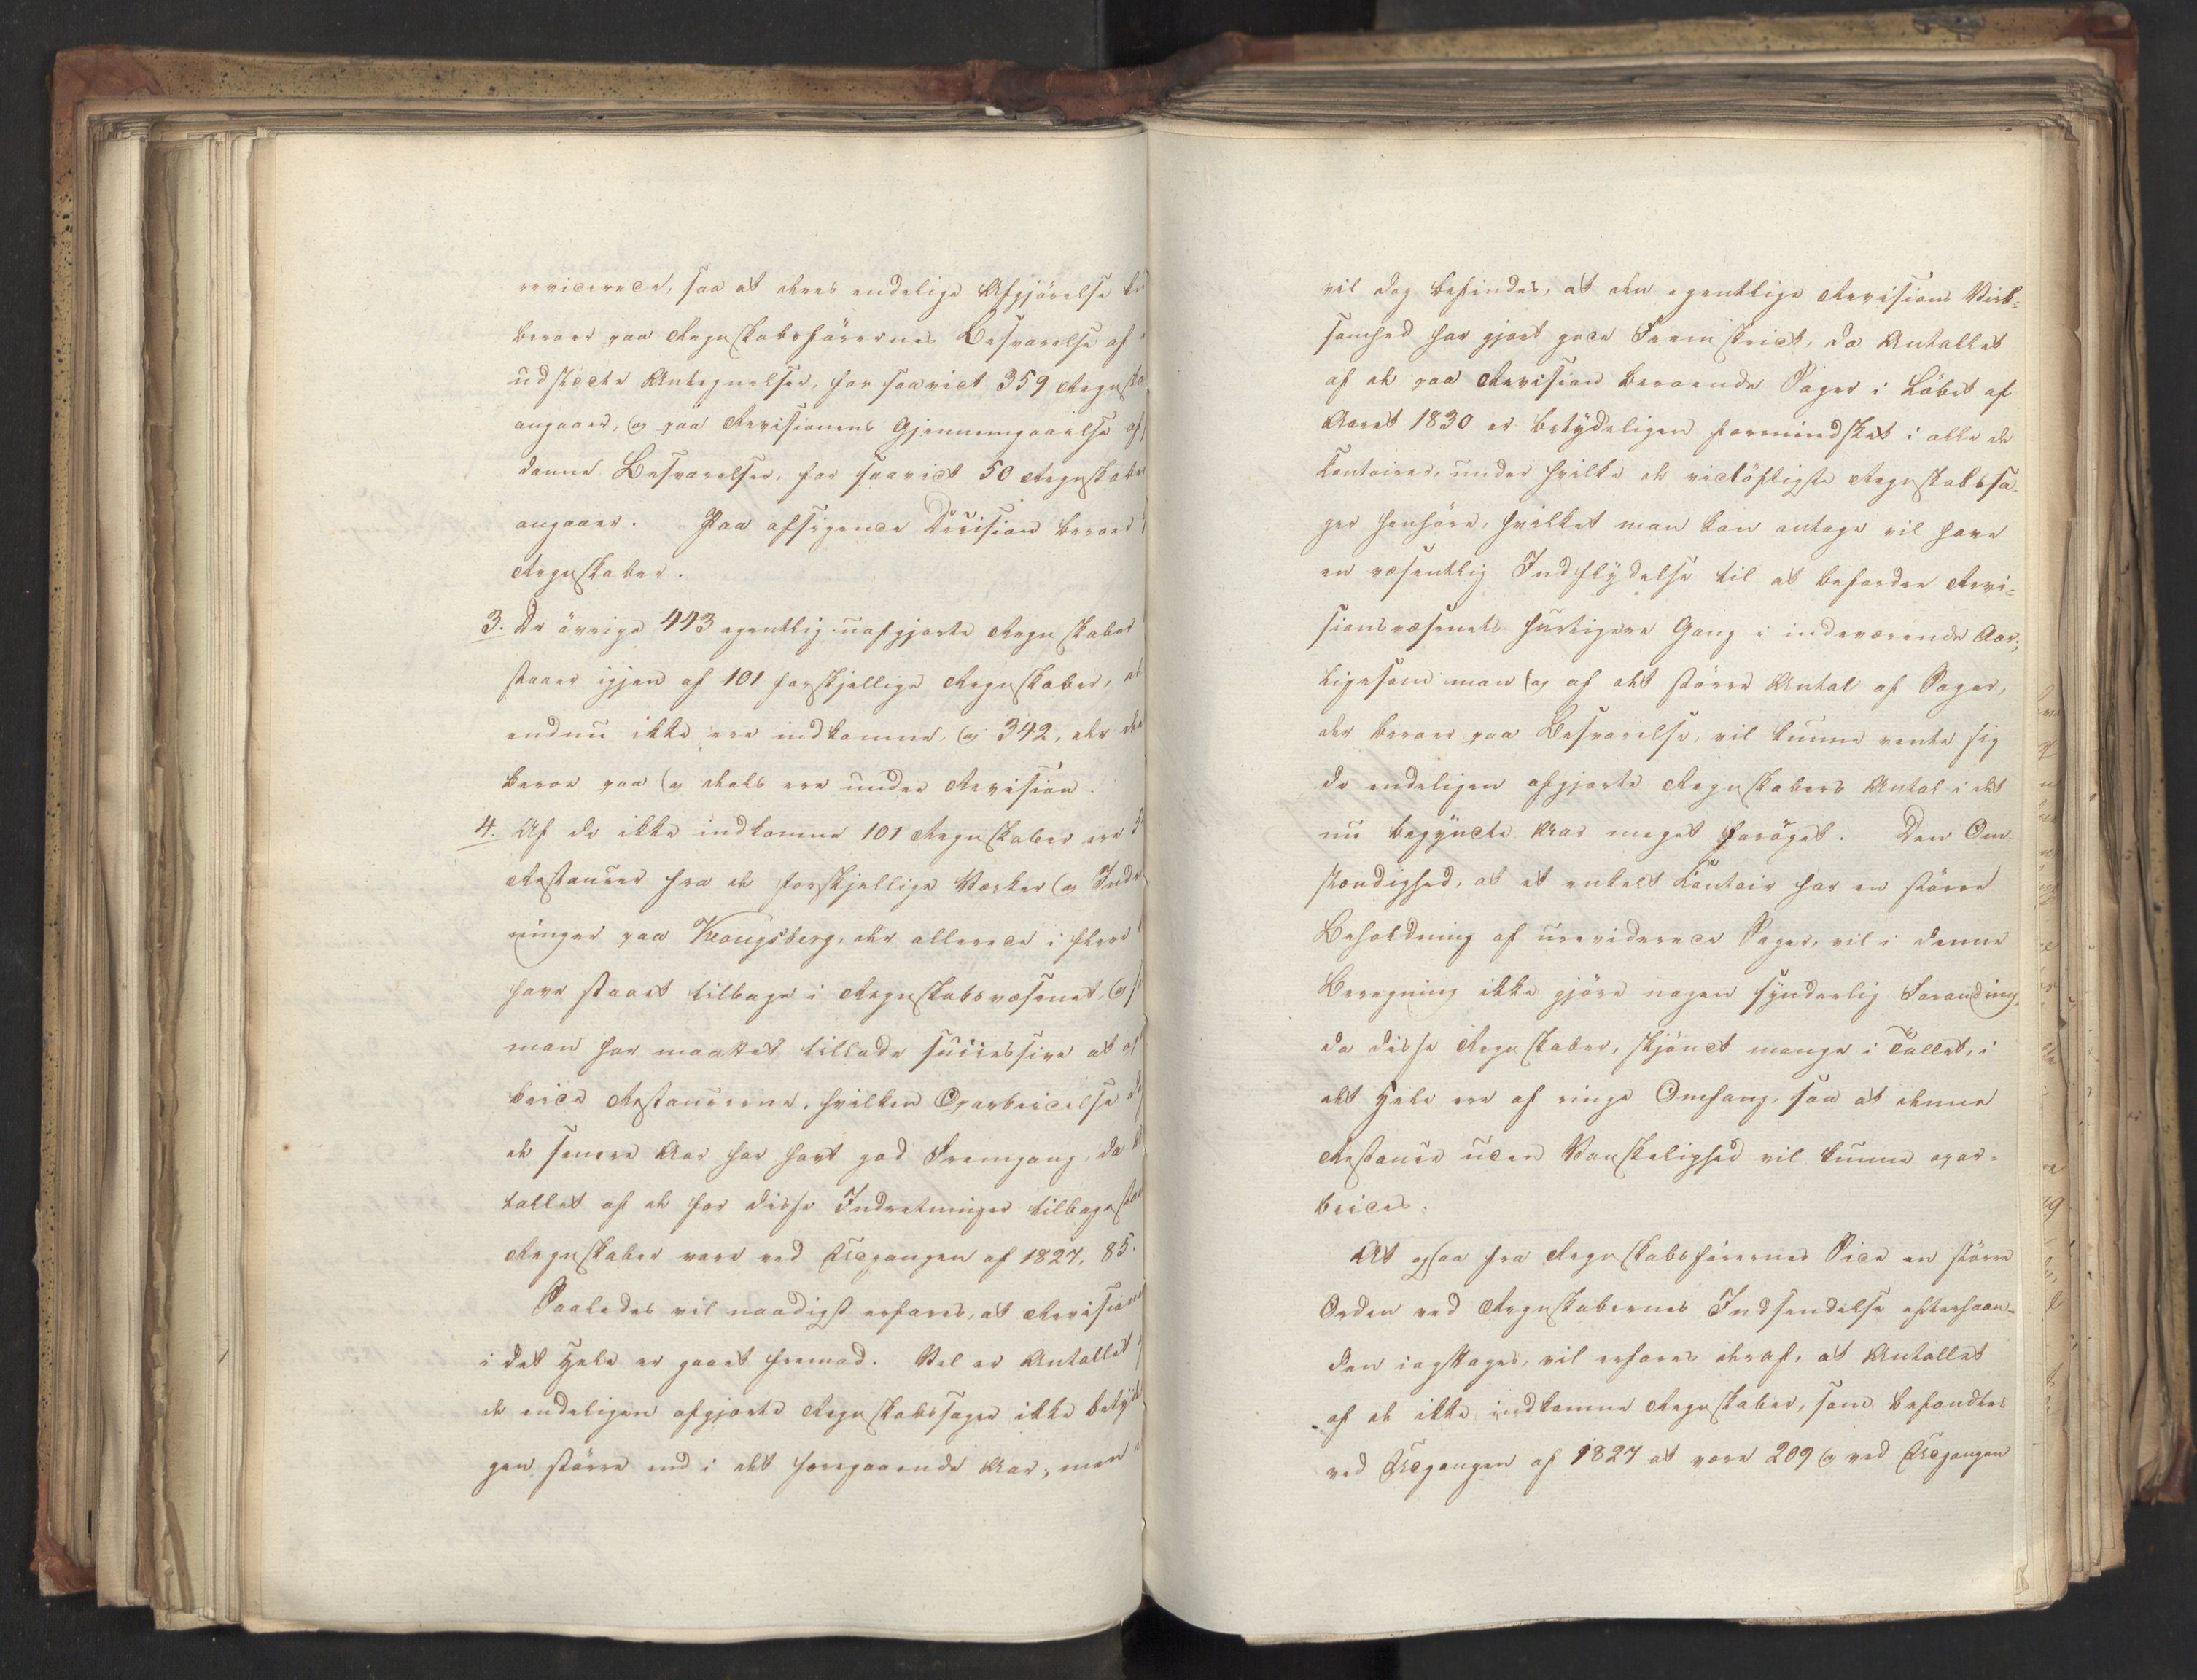 reviderede, saa at deres endelige Afgjörelse
beroer paa Regnskabsförernes Besvarelse af
udstedte Antegnelser, for saavidt 359 Regnska
angaaer, og paa Revisionens Gjennemgaaelse af
denne Besvarelser, for saavidt 50 Regnskaber
angaaer. Paa afsigende Decision beroer
Regnskaber.
3. De övrige 443 egentlig uafgjorte Regnskaber
staaer igjen af 101 forskjellige Regnskaber,
endnu ikke ere indkomne, og 342, der
beroe paa og deels ere under Revision.
4. Af de ikke indkomne 101 Regnskaber ere
Restancer fra de forskjellige Værker og Indr
ninger paa Kongsberg, der allerede i flere
have staaet tilbage i Regnskabsvæsenet, og
man har maattet tillade successive at
beide Restancerne, hvilken Oparbeidelse
de senere Aar har havt god Fremgang, da
tallet af de for disse Indretninger tilbagesta
Regnskaber vare ved Udgangen af 1827, 85.
Saaledes vil naadigst erfares, at Revision
i det Hele er gaaet fremad. Vel er Antallet
de endeligen afgjorte Regnskabssager ikke betyde
gen större end i det foregaaende Aar; men
vil dog befindes, at den egentlige Revisions Virk-
somhed har gjort gode Fremskridt, da Antallet
af de paa Revision beroende Sager i Löbet af
Aaret 1830 er betydeligen formindsket i alle de
Contoirer, under hvilke de vidtlöftigste Regnskabssa-
ger henhöre, hvilket man kan antage vil have
en væsentlig Indflydelse til at befordre Revi-
sionsvæsenets hurtigere Gang i indeværende Aar;
ligesom man og af det större Antal af Sager,
der beroer paa Besvarelse, vil kunne vente sig
de endeligen afgjorte Regnskabers Antal i det
nu begyndte Aar meget foröget. Den Om-
stændighed, at et enkelt Contoir har en större
Beholdning af urevider­ede Sager, vil i denne
Beregning ikke gjöre nogen synderlig Forandring,
da disse Regnskaber, skjöndt mange i Tallet, i
det Hele ere af ringe Omfang, saa at denne
Restance uden Vanskelighed vil kunne opar-
beides.
At ogsaa fra Regnskabsförernes Side en större
Orden ved Regnskabernes Indsendelse efterhaan-
den iagttages, vil erfares deraf, at Antallet
af de ikke indkomne Regnskaber, som befandtes
ved Udgangen af 1827 at være 209 og ved Udgangen